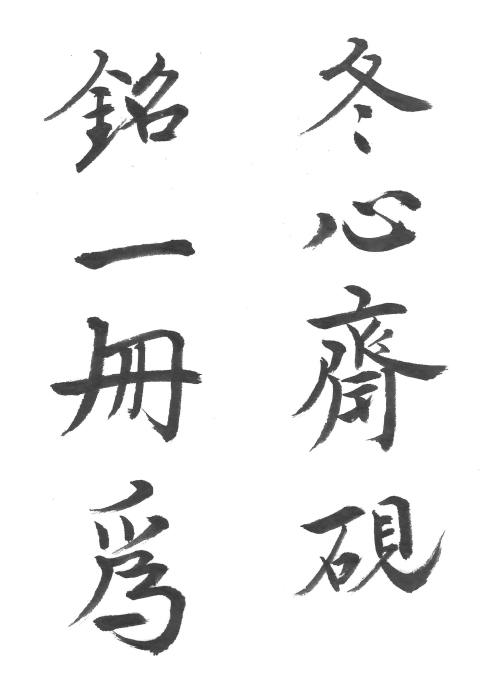 冬心齋硯
銘一冊為